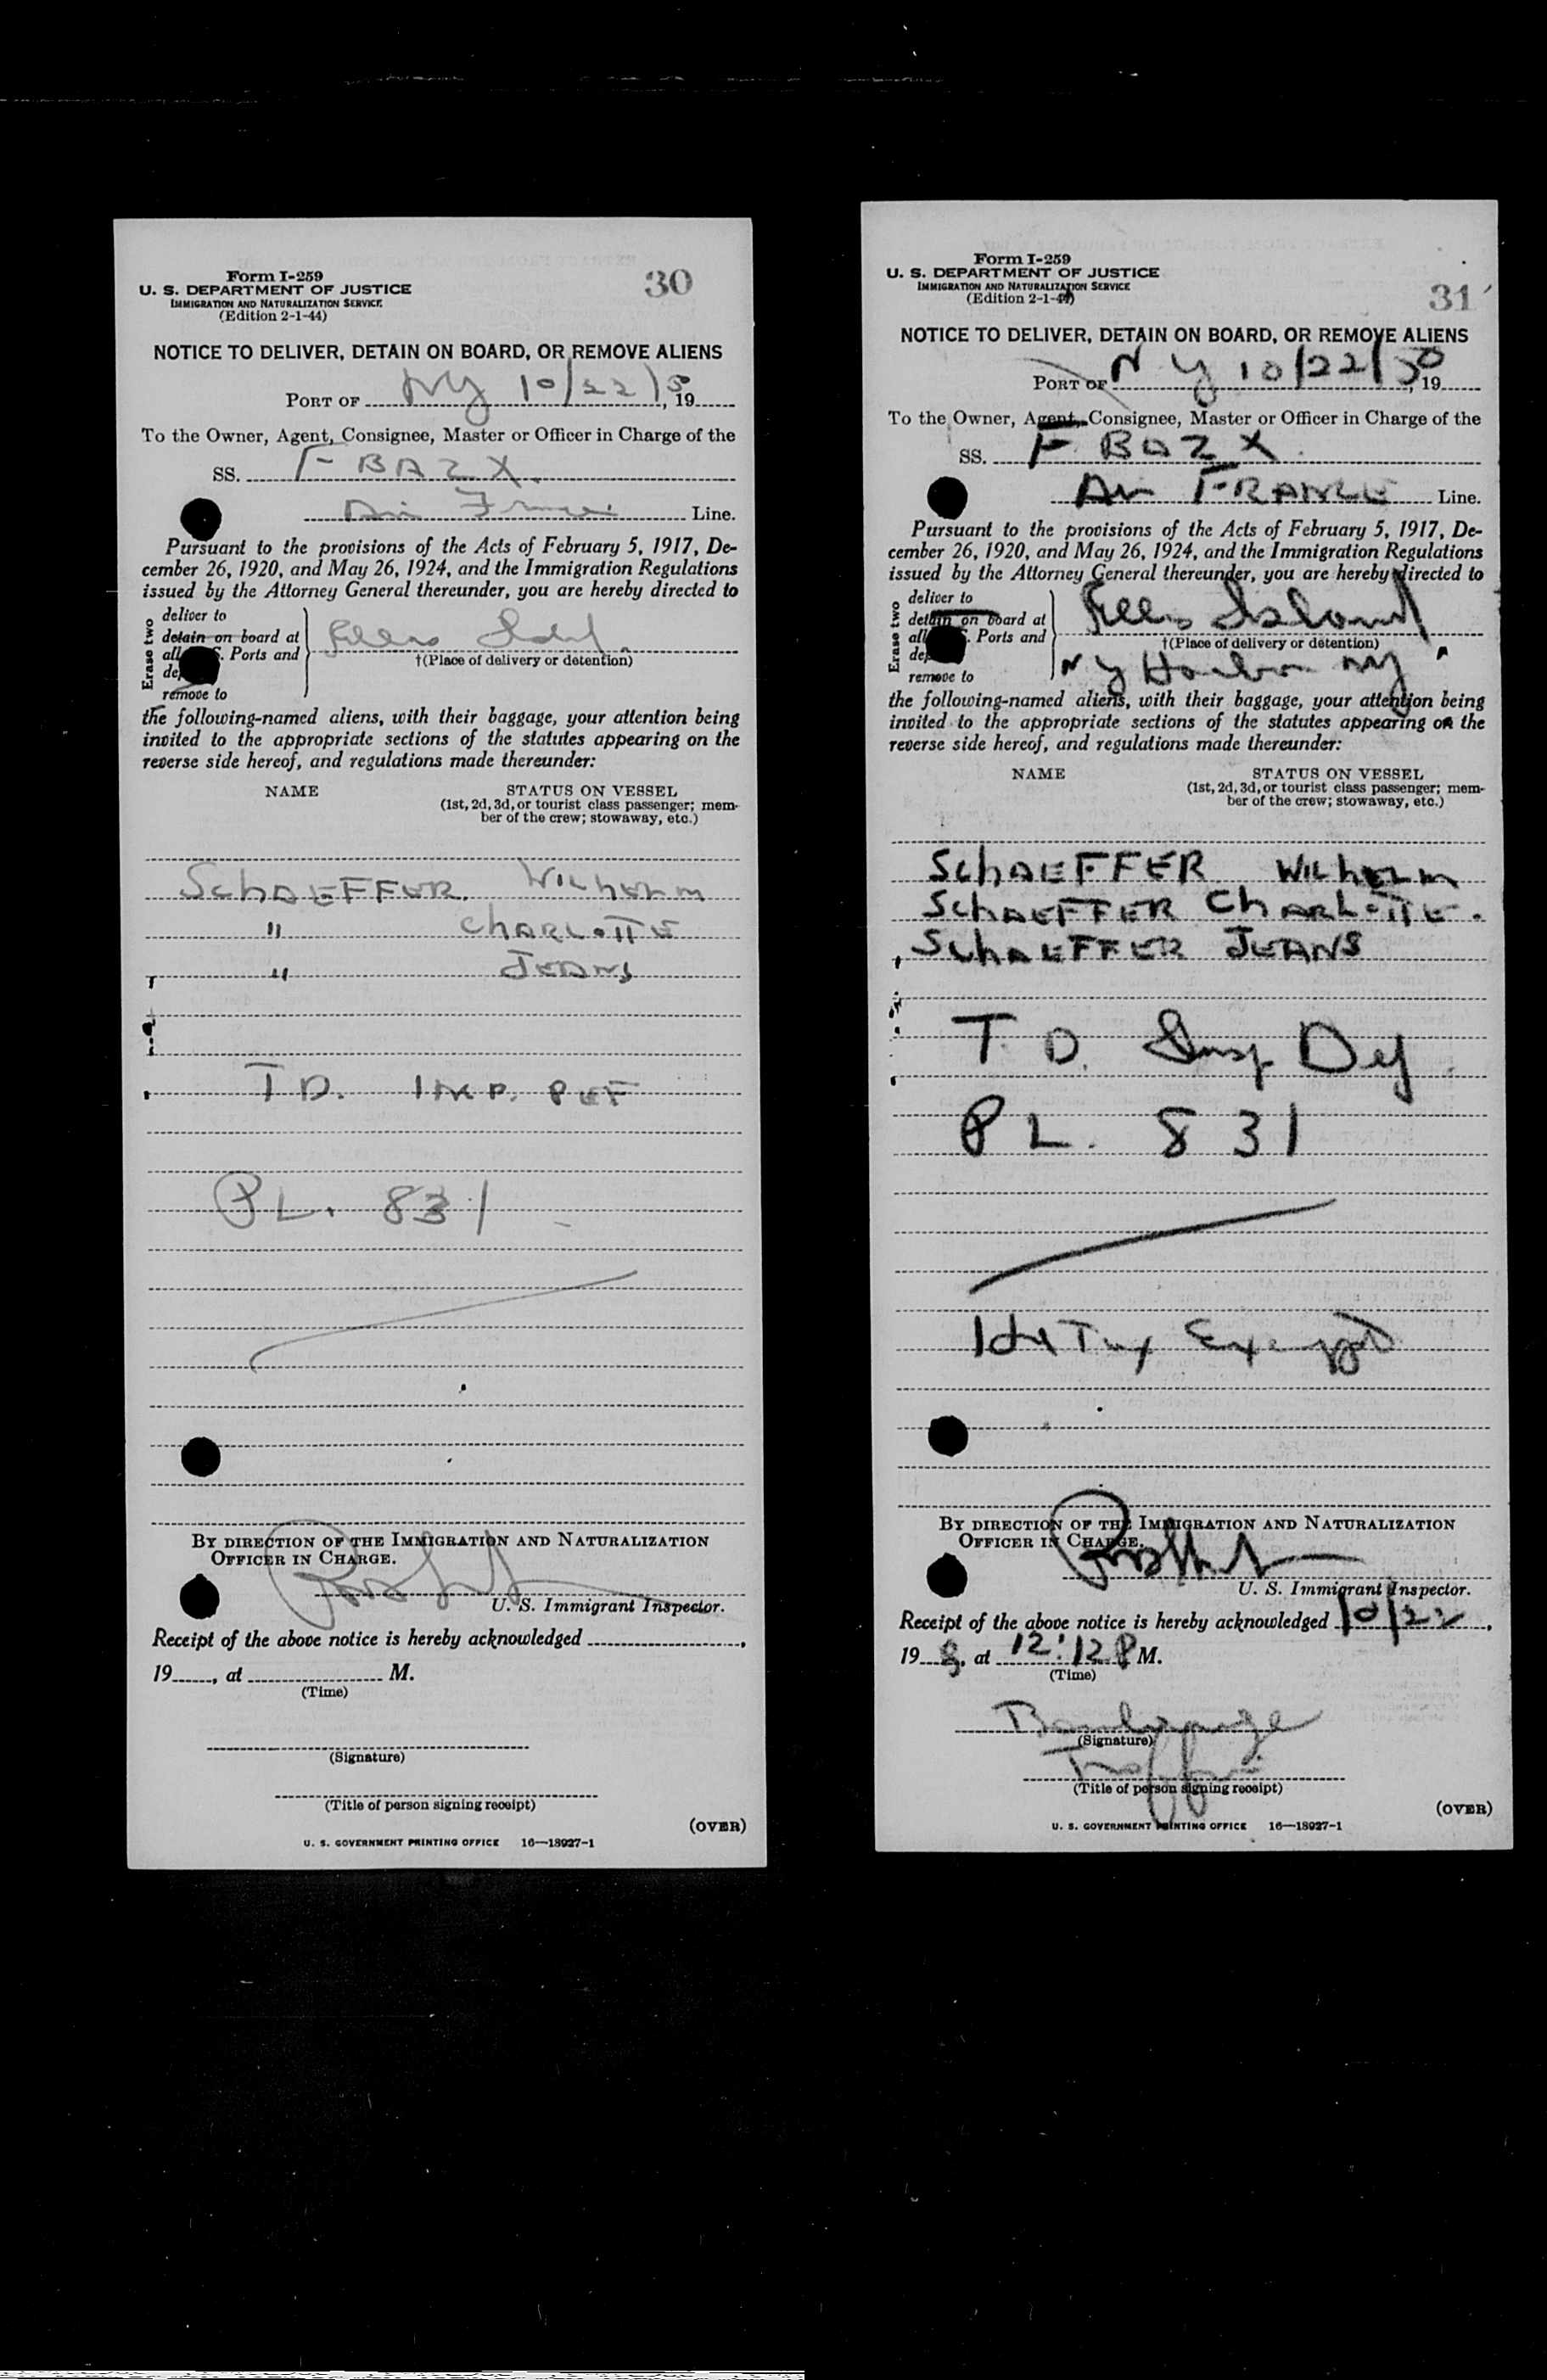 Form I-259
U. S. DEPARTMENT OF JUSTICE
IMMIGRATION AND NATURALIZATION SERVICE
(Edition 2-1-44)
30
NOTICE TO DELIVER, DETAIN ON BOARD, OR REMOVE ALIENS
PORT OF NY 10/22/50, 19
To the Owner, Agent, Consignee, Master or Officer in Charge of the
SS. F-BAZX
Air France Line.
Pursuant to the provisions of the Acts of February 5, 1917, De-
cember 26, 1920, and May 26, 1924, and the Immigration Regulations
issued by the Attorney General thereunder, you are hereby directed to
Erase two
deliver to
detain on board at
all S. Ports and
remove to
Ellis Isld.
†(Place of delivery or detention)
the following-named aliens, with their baggage, your attention being
invited to the appropriate sections of the statutes appearing on the
reverse side hereof, and regulations made thereunder:
NAME STATUS ON VESSEL
(1st, 2d, 3d, or tourist class passenger; mem-
ber of the crew; stowaway, etc.)
SCHAEFFER. WILHELM
" CHARLOTTE
" JEANS
T D.
P L. 831
BY DIRECTION OF THE IMMIGRATION AND NATURALIZATION
OFFICER IN CHARGE.
U. S. Immigrant Inspector.
Receipt of the above notice is hereby acknowledged ,
19 , at M.
(Time)
(Signature)
(Title of person signing receipt)
(OVER)
U. S. GOVERNMENT PRINTING OFFICE 16—18927-1
Form I-259
U. S. DEPARTMENT OF JUSTICE
IMMIGRATION AND NATURALIZATION SERVICE
(Edition 2-1-44)
31
NOTICE TO DELIVER, DETAIN ON BOARD, OR REMOVE ALIENS
PORT OF N Y 10/22/50, 19
To the Owner, Agent, Consignee, Master or Officer in Charge of the
SS. F. BAZX.
Air FRANCE Line.
Pursuant to the provisions of the Acts of February 5, 1917, De-
cember 26, 1920, and May 26, 1924, and the Immigration Regulations
issued by the Attorney General thereunder, you are hereby directed to
Erase two
deliver to
detain on board at
all Ports and
remove to
Ellis Island
†(Place of delivery or detention)
N Y Harbor NY
the following-named aliens, with their baggage, your attention being
invited to the appropriate sections of the statutes appearing on the
reverse side hereof, and regulations made thereunder:
NAME STATUS ON VESSEL
(1st, 2d, 3d, or tourist class passenger; mem-
ber of the crew; stowaway, etc.)
SCHAEFFER WILHELM
SCHAEFFER CHARLOTTE.
SCHAEFFER JEANS
T. D. Insp
P L. 831
Hd Tax Exempt
BY DIRECTION OF THE IMMIGRATION AND NATURALIZATION
OFFICER IN CHARGE.
U. S. Immigrant Inspector.
Receipt of the above notice is hereby acknowledged 10/22,
19 , at 12:12 P M.
(Time)
(Signature)
Traffic
(Title of person signing receipt)
(OVER)
U. S. GOVERNMENT PRINTING OFFICE 16—18927-1